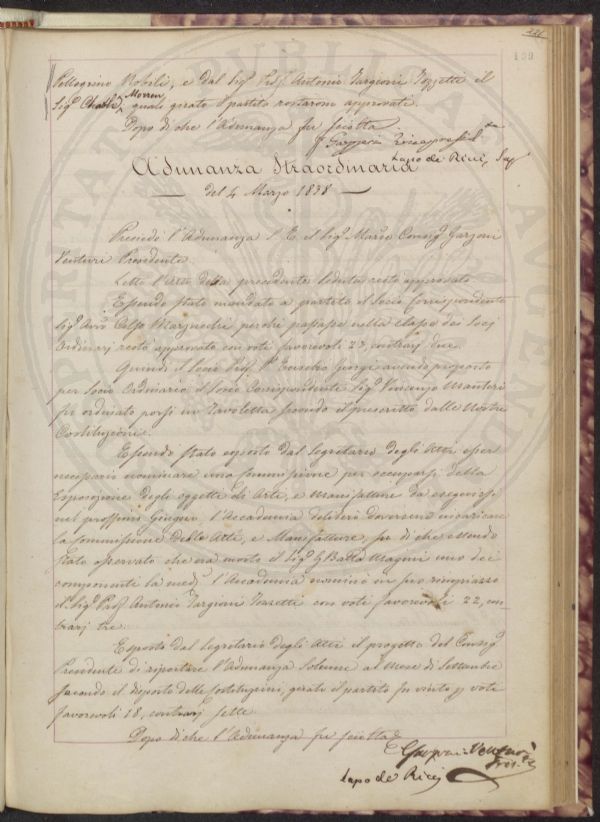 139
Pellegrino Nobili, e dal Sig.r Prof. Antonio Targioni Tozzetti il
Sig.r Morren, quale girato il partito restarono approvati.
Dopo di che l'Adunanza fu sciolta.
Lapo de Ricci, Seg
Adunanza Straordinaria
del 4 Marzo 1838
Presiedé l'Adunanza S. E. il Sig.r March. Consig.r Garzoni
Venturi Presidente.
Letto l'Atto della precedente Seduta restò approvato
Essendo stato mandato a partito il Socio Corrispondente
Sig.r Avv. Celso Marzucchi perché passasse nella classe dei Socj
Ordinarj restò approvato con voti favorevoli 23, contrarj due.
Quindi il Socio Prof. P. Eusebio Giorgi avendo proposto
per Socio Ordinario il Socio Corrispondente Sig.r Vincenzo Manteri
fu ordinato porsi in Tavoletta secondo il prescritto dalle Nostre
Costituzioni.
Essendo stato esposto dal Segretario degli Atti esser
necessario nominare una Commissione per occuparsi della
Esposizione degli oggetti di Arte, e Manifatture da eseguirsi
nel prossimo Giugno l'Accademia deliberò doversene incaricare
la Commissione delle Arti, e Manifatture, su di che essendo
stato osservato che era morto il Sig.r G Batta Magini uno dei
componenti la med.a l'Accademia nominò in suo rimpiazzo
il Sig.r Prof. Antonio Targioni Tozzetti con voti favorevoli 22, con=
trarj tre.
Esposto dal Segretario degli Atti il progetto del Consig.r
Presidente di riportare l'Adunanza Solenne al Mese di Settembre
secondo il disposto delle Costituzioni, girato il partito fu vinto p voti
favorevoli 18, contrarj sette.
Dopo di che l'Adunanza fu sciolta
Garzoni Venturi
Pres.te
Lapo de Ricci